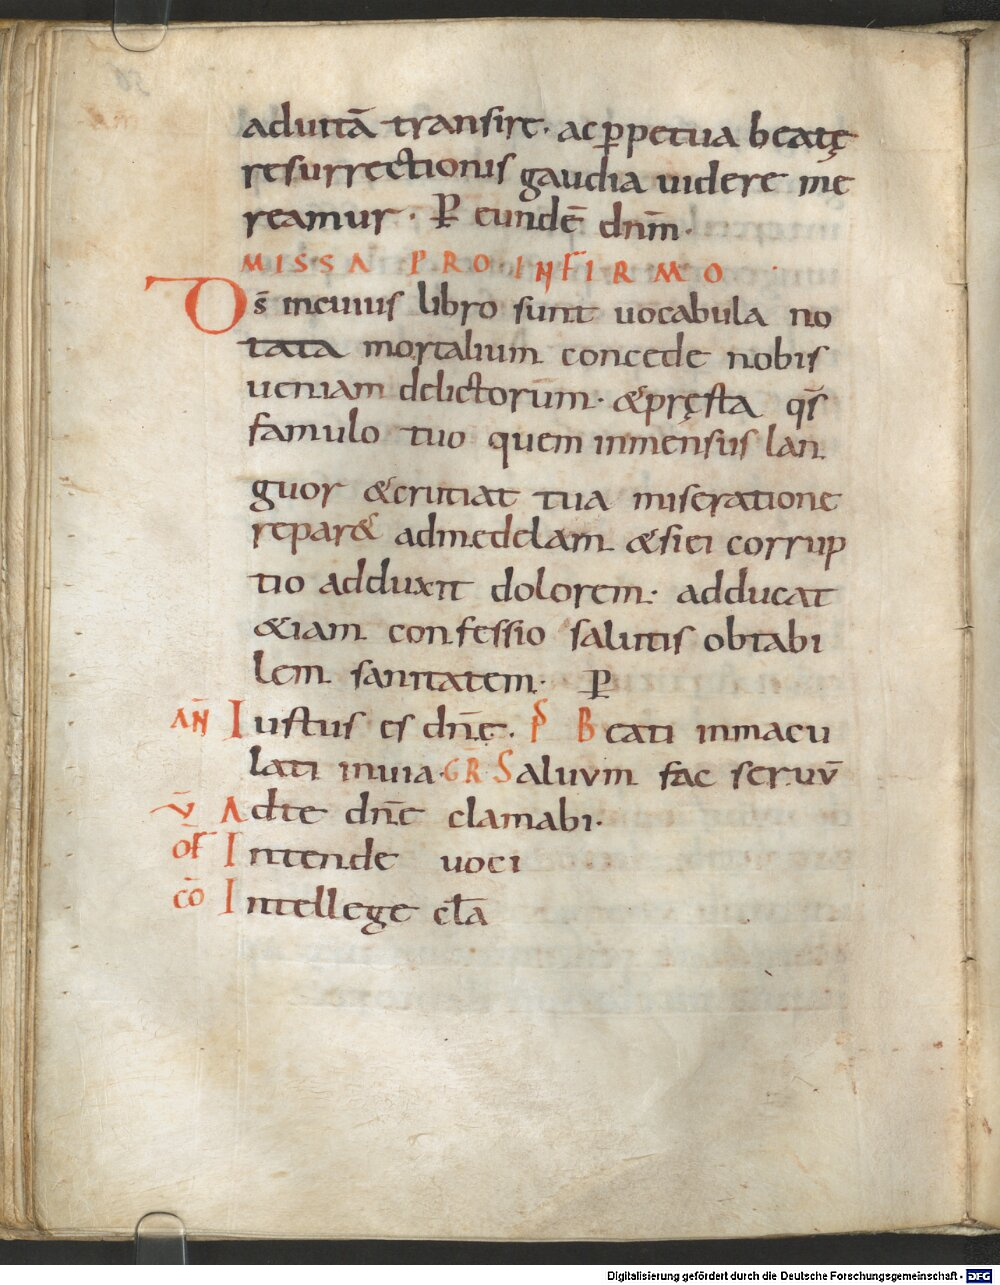 aduitā transire. ac ꝑpetua beatę
resurrectionis gaudia uidere me
reamur. P̄ eundē dnm̄.
MISSA PRO INFIRMO
Ds̄ incuius libro sunt uocabula no
tata mortalium concede nobis
ueniam delictorum. &pręsta qs̄
famulo tuo quem inmensus lan
guor &crutiat tua miseratione
repar& admedelam &sici corrup
tio adduxit dolorem. adducat
&iam confessio salutis obtabi
lem sanitatem. P̄
AÑ Iustus es dnē. P̄S Beati inmacu
lati inuia. GR̄ Saluum fac seruū
V̄ Adte dnē clamabi.
OF̄ Intende uoci
CŌ Intellege clā
Digitalisierung gefördert durch die Deutsche Forschungsgemeinschaft - DFG